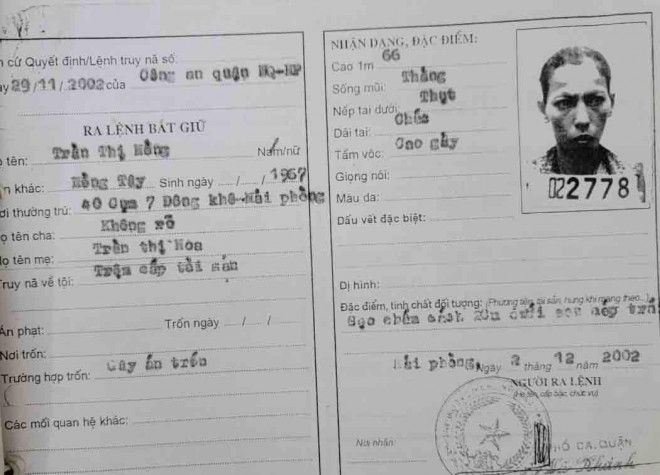 n cứ Quyết định/Lệnh truy nã số:
ày 29/11/2002 của Công an quận NQ-HP
RA LỆNH BẮT GIỮ
ọ tên: Trần Thị Hồng Nam/nữ
n khác: Hồng Tây Sinh ngày / / 1967
ơi thường trú: 40 Cụm 7 Đông khê-Hải phòng
ọ tên cha: Không rõ
Họ tên mẹ: Trần thị Hoa
Truy nã về tội: Trộm cắp tài sản
Án phạt: Trốn ngày / /
Nơi trốn:
Trường hợp trốn: Gây án trốn
Các mối quan hệ khác:
NHẬN DẠNG, ĐẶC ĐIỂM:
Cao 1m 66
Sống mũi: Thẳng
Nếp tai dưới: Thụt
Dái tai: Chúc
Tầm vóc: Cao gầy
Giọng nói:
Màu da:
Dấu vết đặc biệt:
Dị hình:
Đặc điểm, tính chất đối tượng: (Phương tiện, tài sản, hung khí mang theo...)
Sẹo chấm cách 2cm dưới sau mép trái
Hải phòng, Ngày 2 tháng 12 năm 2002
NGƯỜI RA LỆNH
(Họ tên, cấp bậc, chức vụ)
Nơi nhận:
PHÓ CA.QUẬN
022778